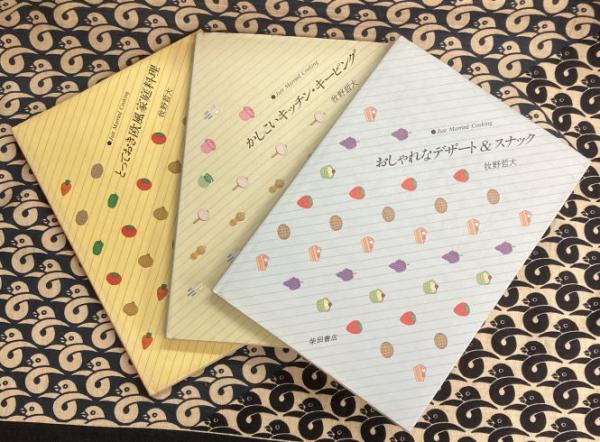 ● Just Married Cooking
とっておき欧風家庭料理
牧野哲大
● Just Married Cooking
かしこいキッチン・キーピング
牧野哲大
● Just Married Cooking
おしゃれなデザート & スナック
牧野哲大
柴田書店